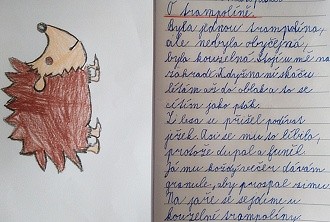 O trampolíně.
Byla jednou trampolína,
ale nebyla obyčejná,
byla kouzelná. Stojí u mě na
zahradě. Když na ní skáču
létám až do oblak a to se
cítím jako pták.
Z lesa se přišel podívat
ježek. Asi se mu to líbilo,
protože dupal a funěl.
Já mu každý večer dávám
granule, aby prospal zimu.
Na jaře se sejdeme u
kouzelné trampolíny.